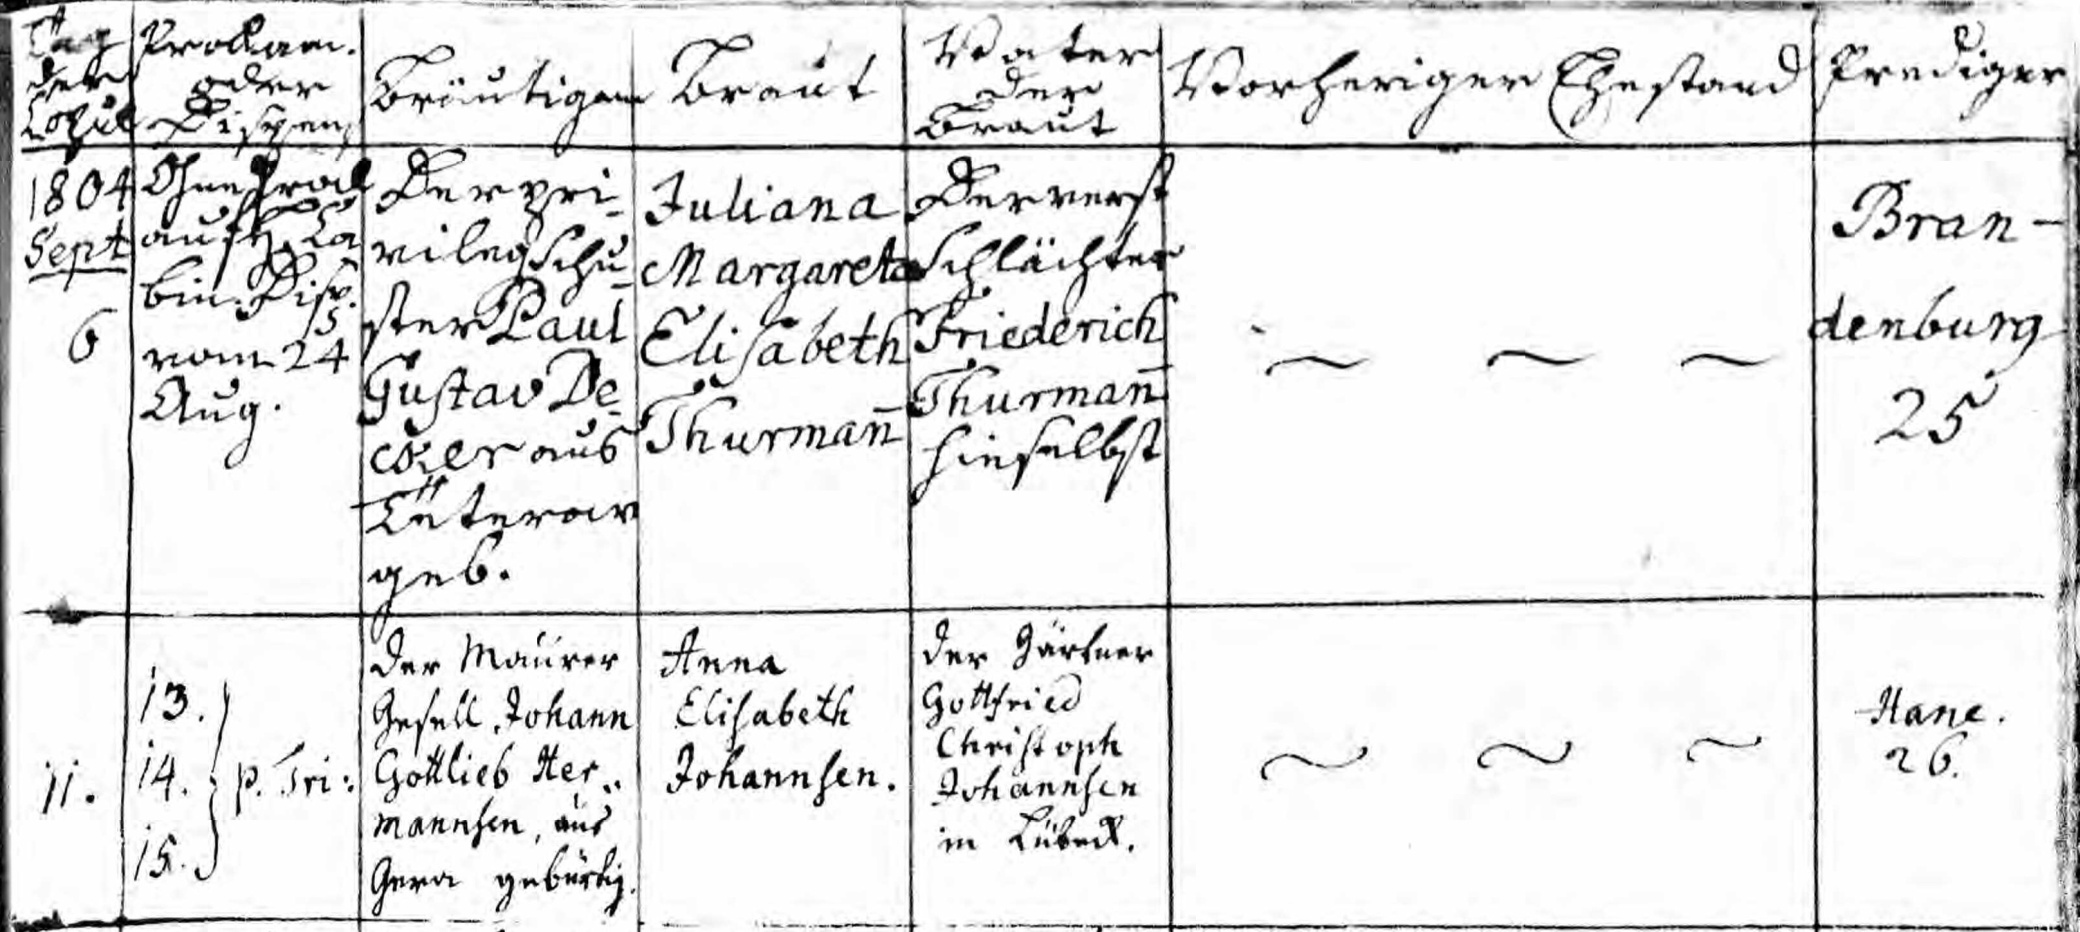 Tag
der
Copul
Proklam.
oder
Dispens
Bräutigam
Braut
Vater
der
Braut
Vorheriger Ehestand
Prediger
1804
Sept
6
Ohne Prokl
auf H. Ca
bin. Disp.
vom 24
Aug.
Der pri-
vileg Schu-
ster Paul
Gustav De-
cker aus
Lüterow
geb.
Juliana
Margareta
Elisabeth
Thurman̄
Der verst
Schlächter
Friederich
Thurman̄
hieselbst
Bran-
denburg
25
11.
13.
14. p. Tri:
15.
Der Maurer
Gesell Johann
Gottlieb Her..
mannsen, aus
Gera gebürtig.
Anna
Elisabeth
Johannsen.
Der Gärtner
Gottfried
Christoph
Johannsen
in Lübeck.
Hane.
26.